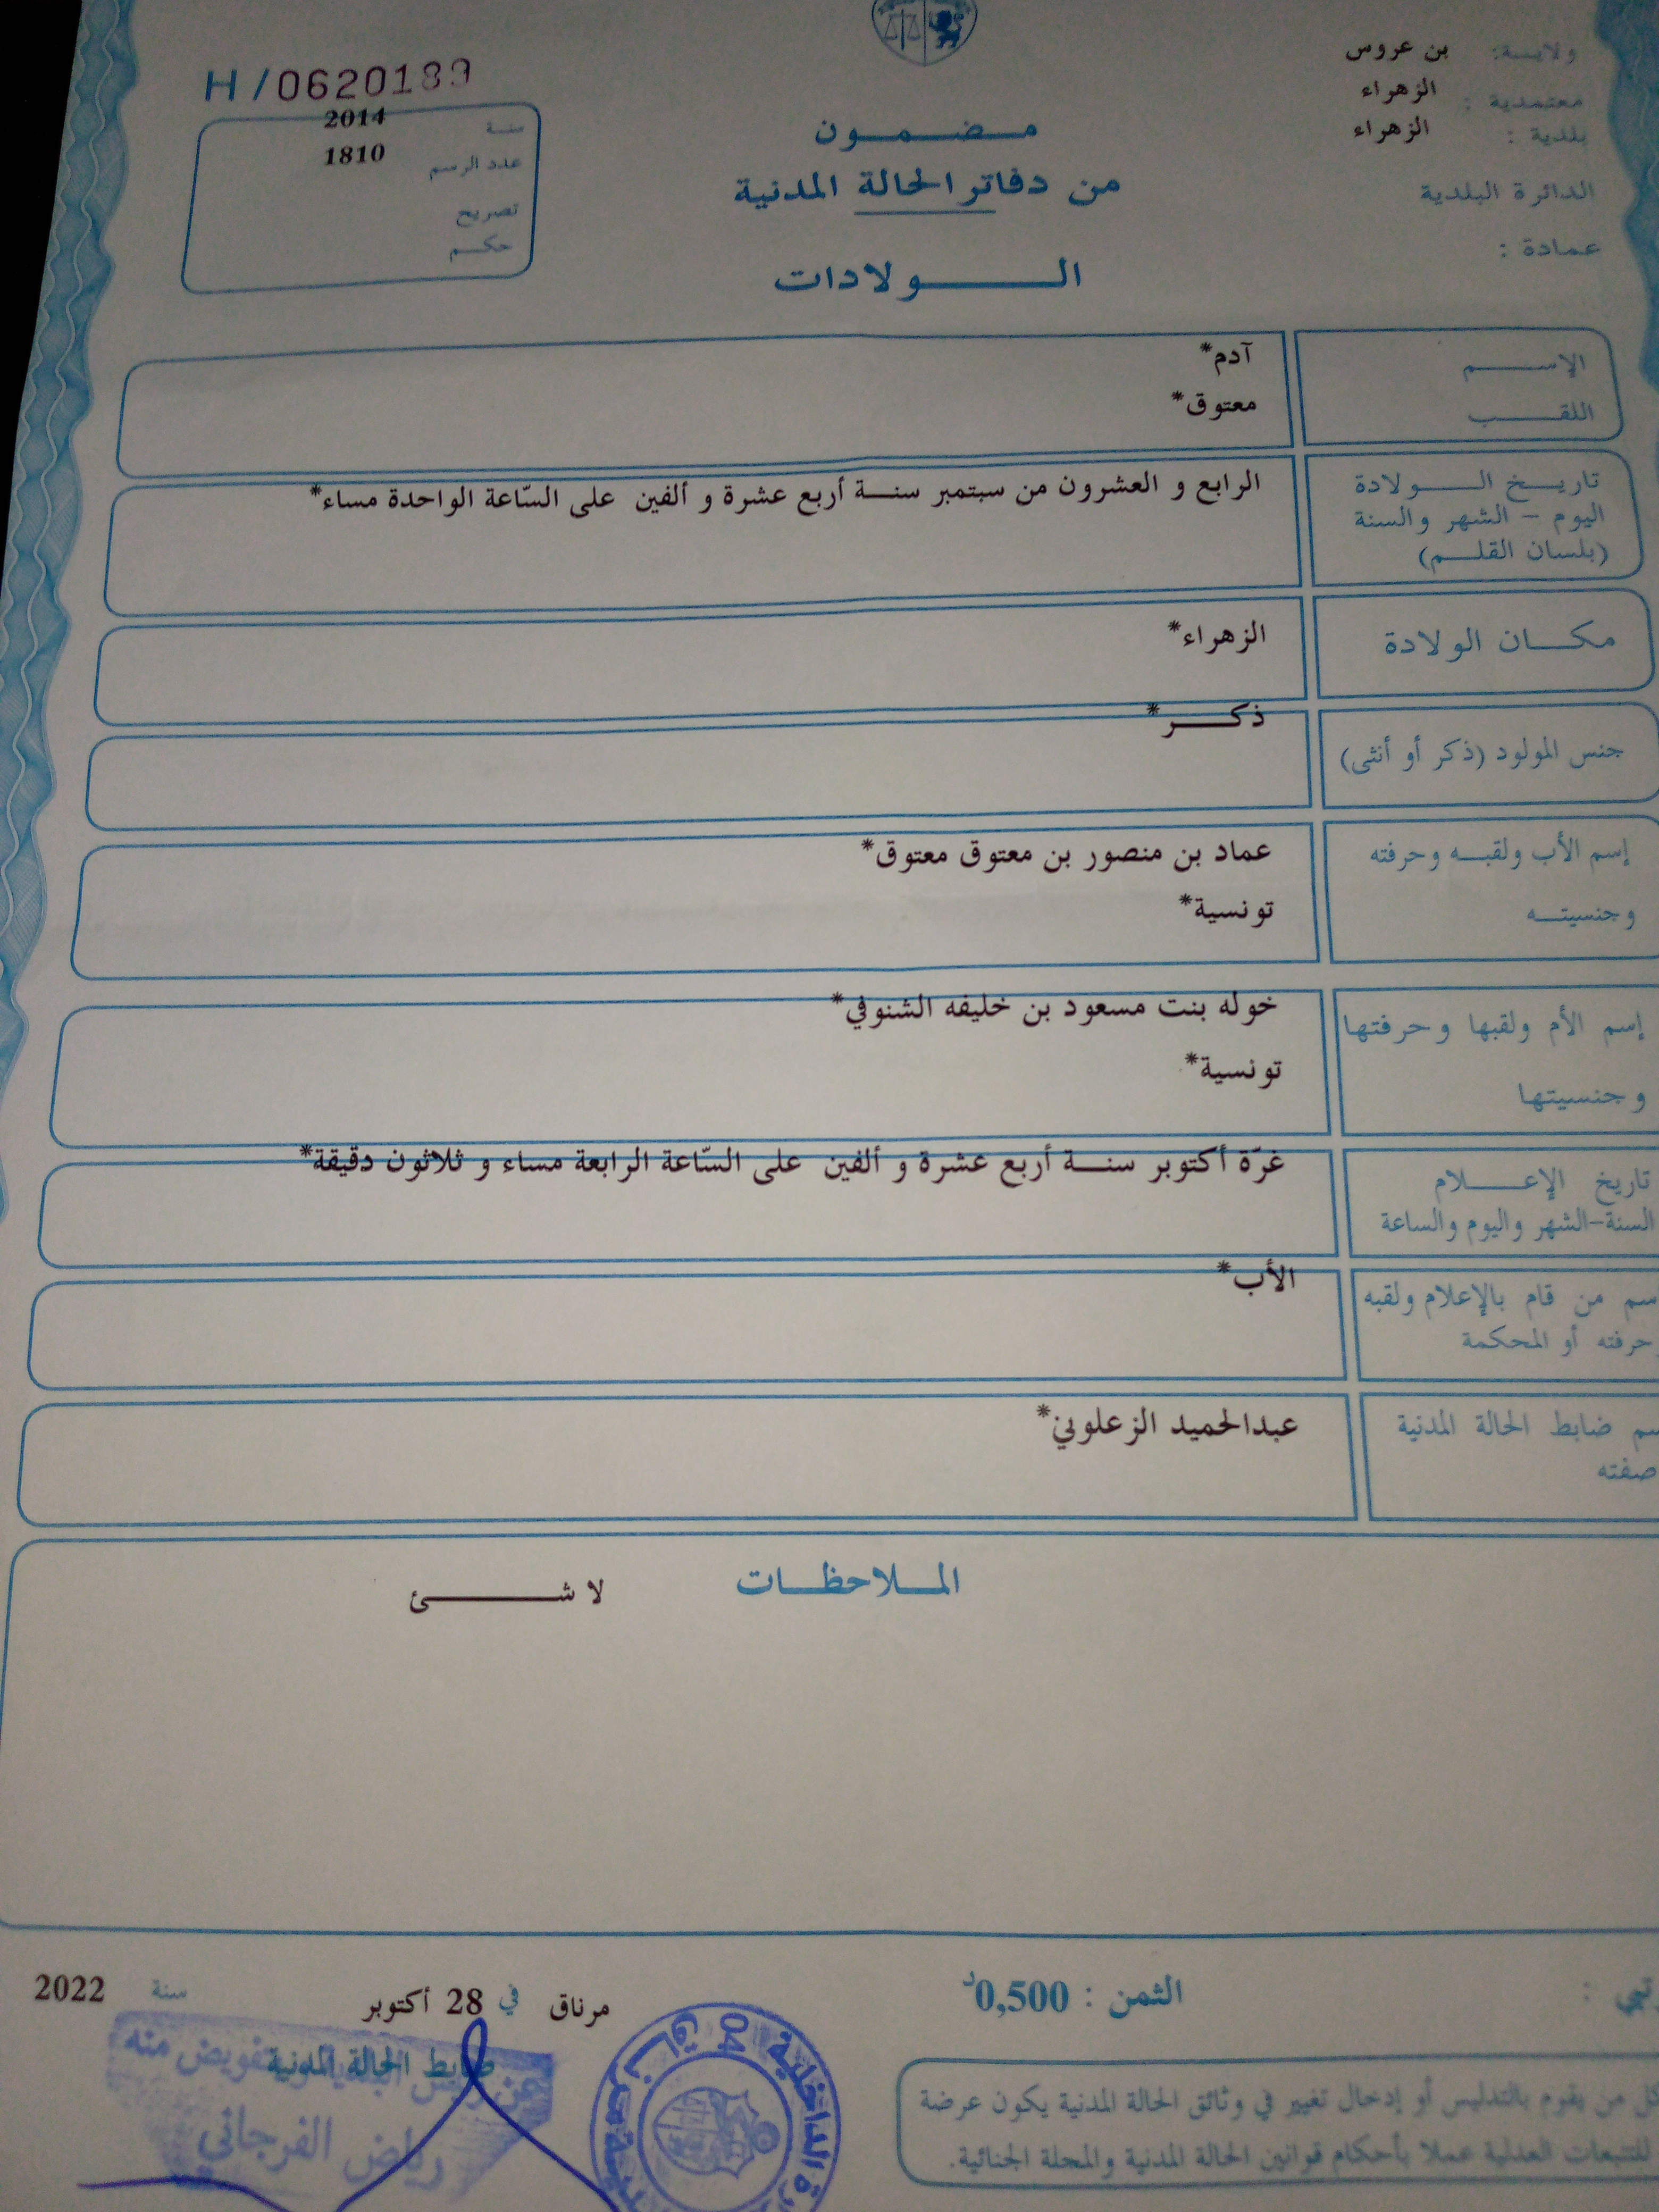 ولايـة: بن عروس
معتمدية : الزهراء
بلدية : الزهراء
الدائرة البلدية
عمادة :
H/0620189
سنة 2014
عدد الرسم 1810
تصريح
حكم
مضمون
من دفاتر الحالة المدنية
الولادات
الإسم آدم*
اللقب معتوق*
تاريخ الولادة
اليوم - الشهر والسنة
(بلسان القلم)
الرابع و العشرون من سبتمبر سنة أربع عشرة و ألفين على السّاعة الواحدة مساء*
مكان الولادة الزهراء*
جنس المولود (ذكر أو أنثى) ذكر*
إسم الأب ولقبه وحرفته عماد بن منصور بن معتوق معتوق*
وجنسيته تونسية*
إسم الأم ولقبها وحرفتها خوله بنت مسعود بن خليفه الشنوفي*
وجنسيتها تونسية*
تاريخ الإعلام
السنة-الشهر واليوم والساعة
غرّة أكتوبر سنة أربع عشرة و ألفين على السّاعة الرابعة مساء و ثلاثون دقيقة*
سم من قام بالإعلام ولقبه الأب*
حرفته أو المحكمة
سم ضابط الحالة المدنية عبدالحميد الزعلوني*
صفته
الملاحظات لا شئ
الثمن : 0,500د
مرناق في 28 أكتوبر سنة 2022
ضابط الحالة المدنية
رياض الفرجاني
كل من يقوم بالتدليس أو إدخال تغيير في وثائق الحالة المدنية يكون عرضة
للتتبعات العدلية عملا بأحكام قوانين الحالة المدنية والمجلة الجنائية.